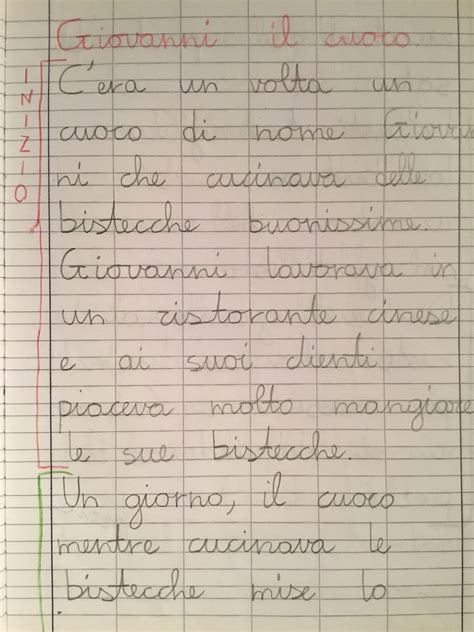 Giovanni il cuoco
INIZIO
C'era un volta un
cuoco di nome Giovan
ni che cucinava delle
bistecche buonissime.
Giovanni lavorava in
un ristorante cinese
e ai suoi clienti
piaceva molto mangiare
le sue bistecche.
Un giorno, il cuoco
mentre cucinava le
bistecche mise lo